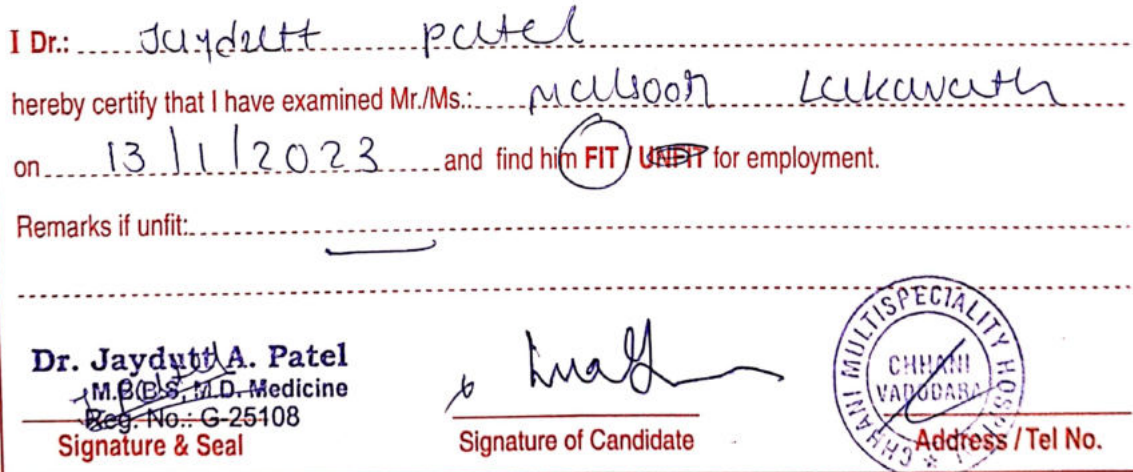 I Dr.: Jaydutt Patel
hereby certify that I have examined Mr./Ms.: Lakavath
on 13/1/2023 and find him FIT / UNFIT for employment.
Remarks if unfit:
Dr. Jaydutt A. Patel
M.B.B.S, M.D. Medicine
Reg. No.: G-25108
Signature & Seal
Signature of Candidate
CHHANI MULTISPECIALITY HOSPITAL
CHHANI
VADODARA
Address / Tel No.